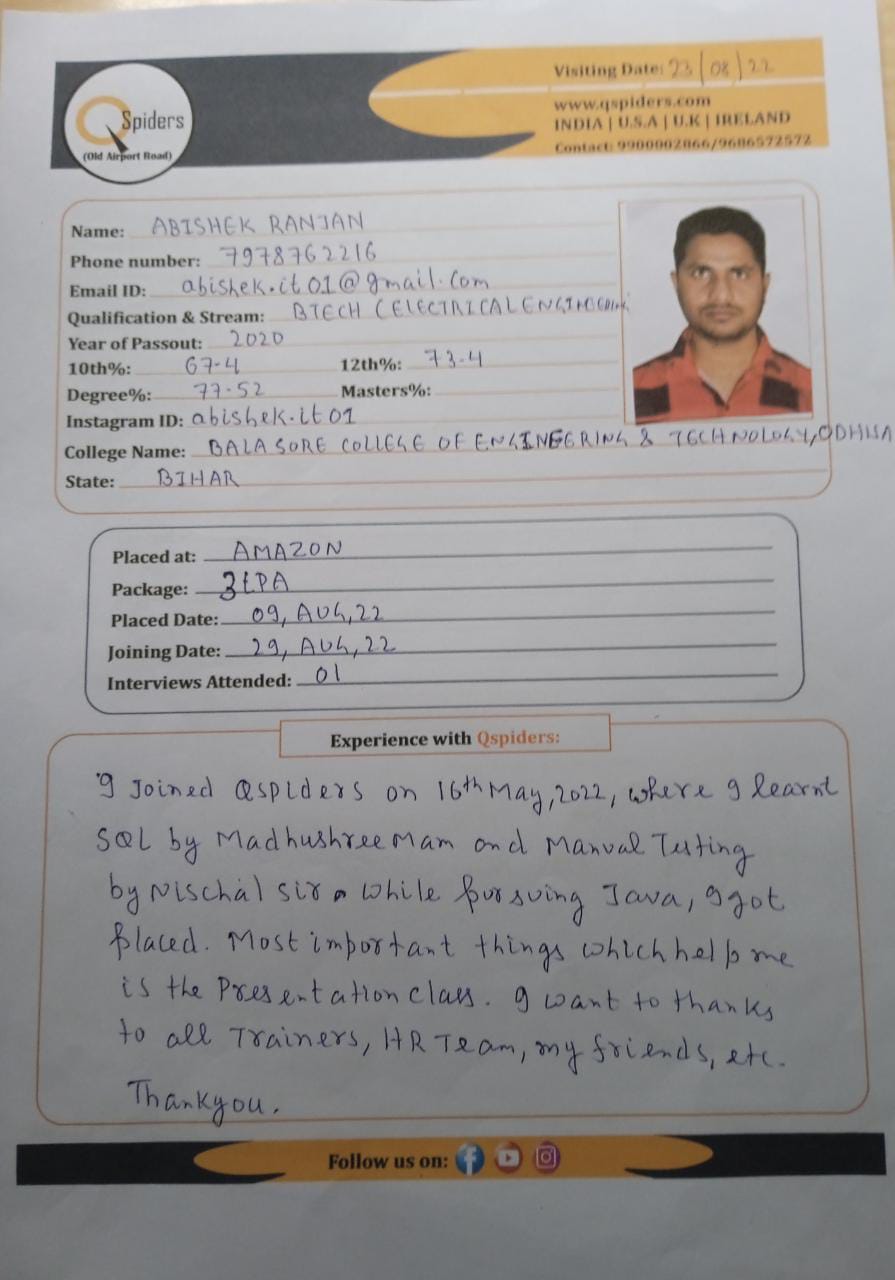 Visiting Date: 23/08/22
Q Spiders
(Old Airport Road)
www.qspiders.com
INDIA | U.S.A | U.K | IRELAND
Contact: 9900002866/9686572572
Name: ABISHEK RANJAN
Phone number: 7978762216
Email ID: abishek.it01@gmail.com
Qualification & Stream: BTECH (ELECTRICAL ENGINEERING
Year of Passout: 2020
10th%: 67.4 12th%: 73.4
Degree%: 77.52 Masters%:
Instagram ID: abishek.it01
College Name: BALASORE COLLEGE OF ENGINEERING & TECHNOLOGY, ODHISA
State: BIHAR
Placed at: AMAZON
Package: 3LPA
Placed Date: 09, AUG, 22
Joining Date: 29, AUG, 22
Interviews Attended: 01
Experience with Qspiders:
I Joined Qspiders on 16th May, 2022, where I learnt
SQL by Madhushree Mam and Manual Testing
by Nischal sir. While pursuing Java, I got
placed. Most important things which help me
is the Presentation class. I want to thanks
to all Trainers, HR Team, my friends, etc.
Thankyou.
Follow us on: